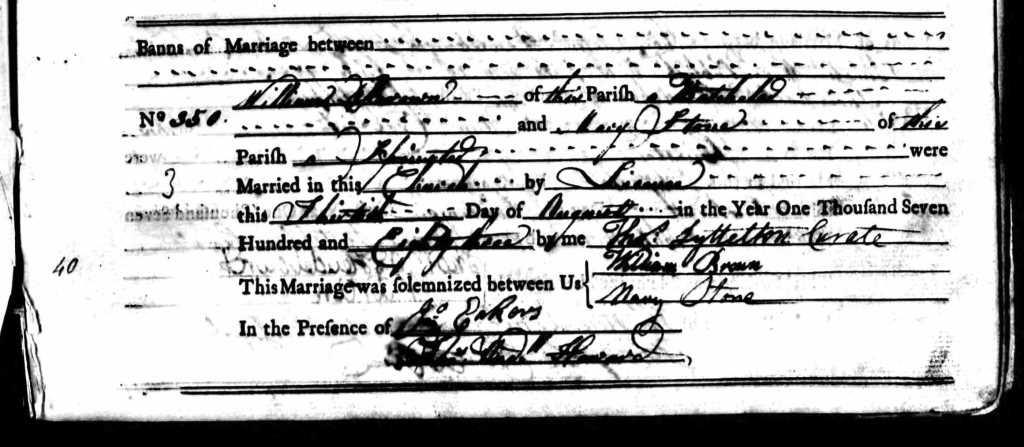 Banns of Marriage between
William Brown of this Parish a Batchelor
No 350. and Mary Stone of this
Parish a Spinster were
Married in this Church by Licence
3
this Thirtieth Day of August in the Year One Thousand Seven
Hundred and Eighty three by me Thos. Lyttelton Curate
40
William Brown
This Marriage was solemnized between Us
Mary Stone
In the Presence of Jno Eakers
Howard